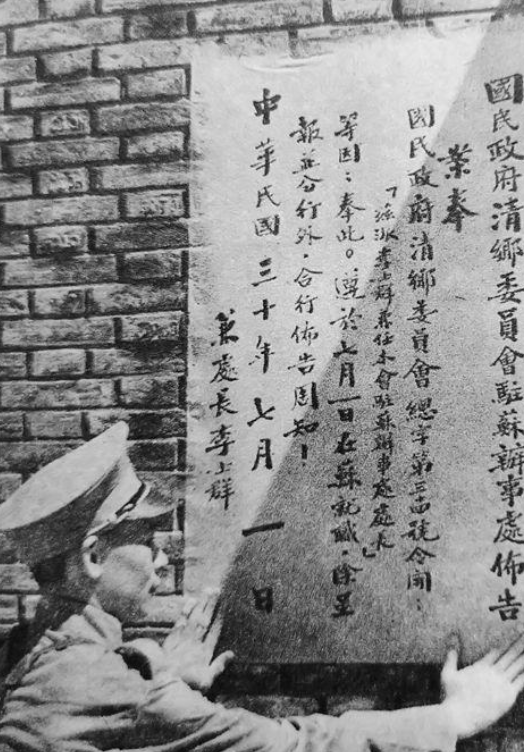 國民政府清鄉委員會駐蘇辦事處佈告
案奉
國民政府清鄉委員會總字第三四號令開：
「茲派李士群兼任本會駐蘇辦事處處長」
等因：奉此。遵於七月一日在蘇就職，除呈
報並分行外，合行佈告周知！
兼處長李士群
中華民國三十年七月一日